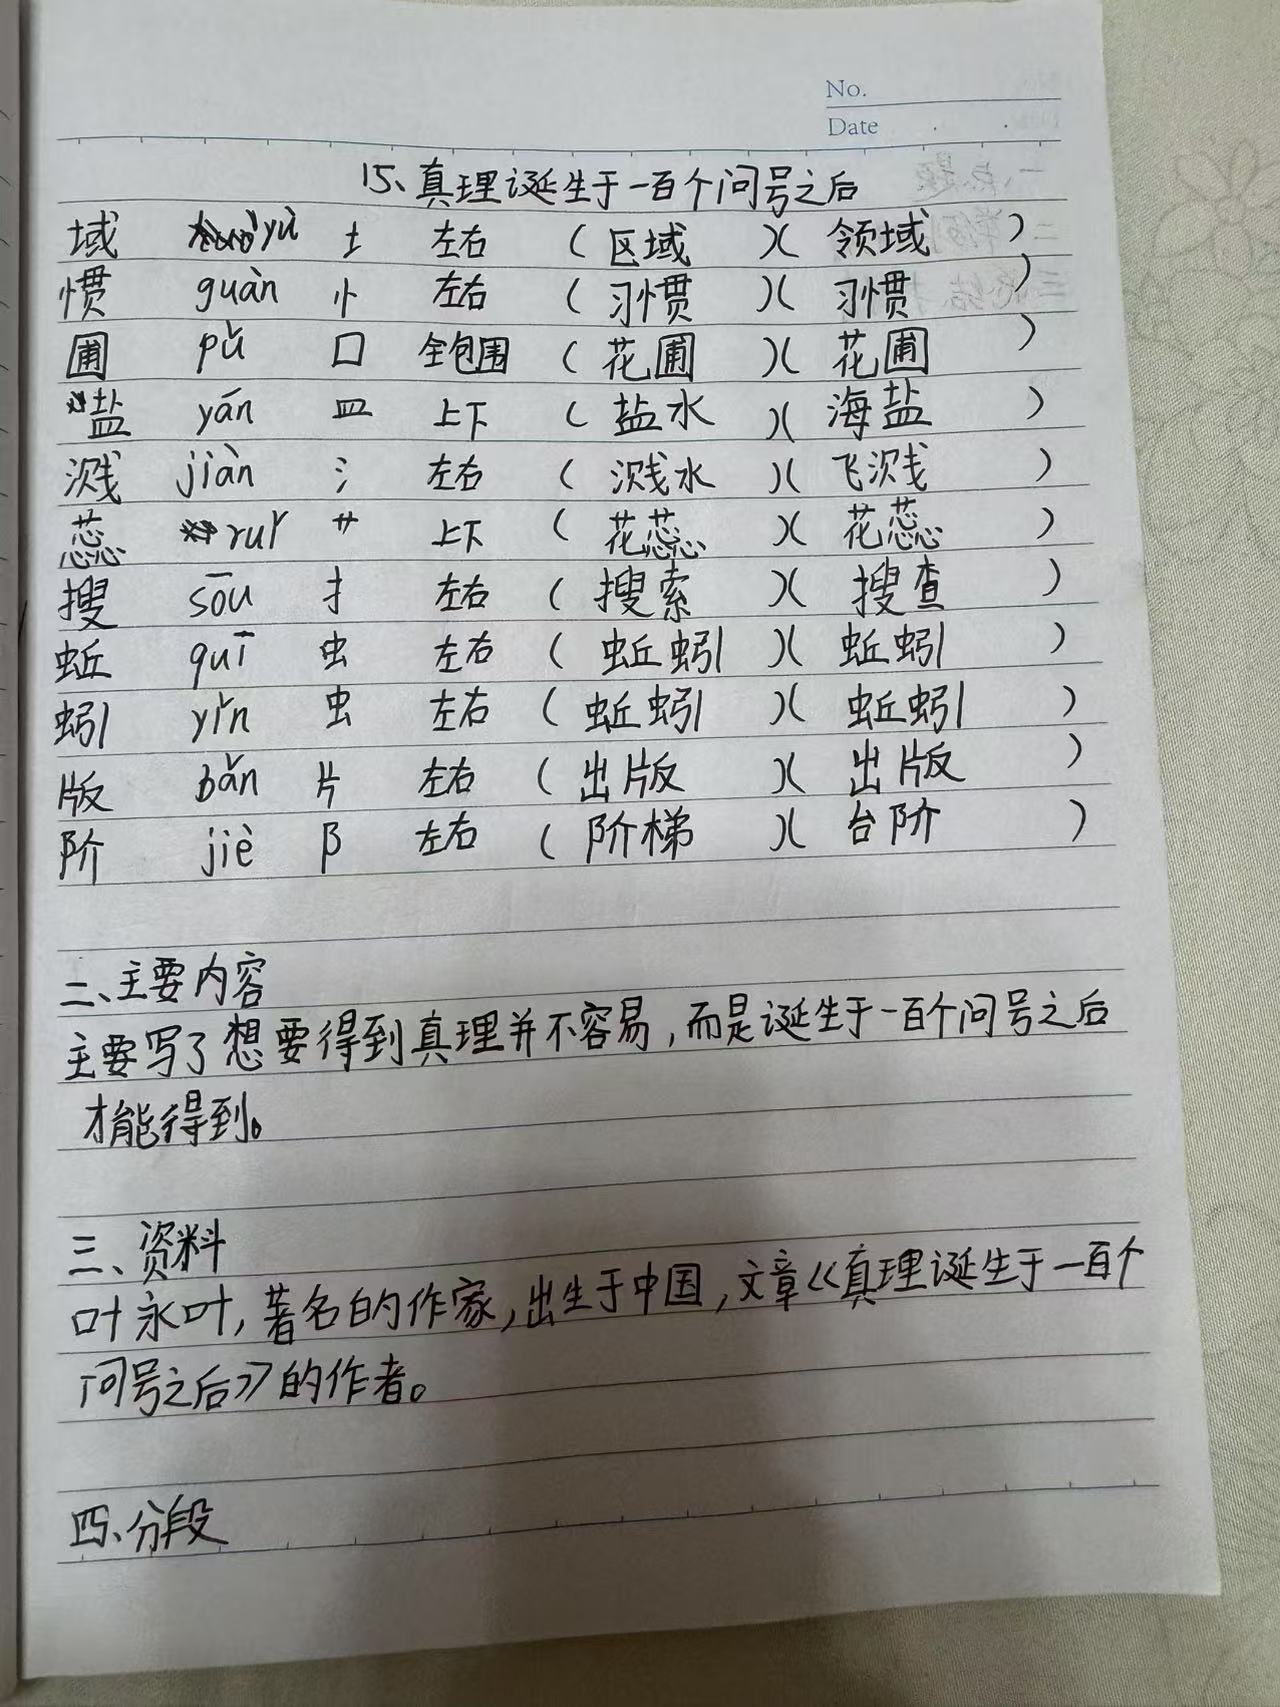 No.
Date
15、真理诞生于一百个问号之后
域 yù 土 左右 (区域)(领域)
惯 guàn 忄 左右 (习惯)(习惯)
圃 pǔ 囗 全包围 (花圃)(花圃)
盐 yán 皿 上下 (盐水)(海盐)
溅 jiàn 氵 左右 (溅水)(飞溅)
蕊 ruǐ 艹 上下 (花蕊)(花蕊)
搜 sōu 扌 左右 (搜索)(搜查)
蚯 quī 虫 左右 (蚯蚓)(蚯蚓)
蚓 yǐn 虫 左右 (蚯蚓)(蚯蚓)
版 bǎn 片 左右 (出版)(出版)
阶 jiè 阝 左右 (阶梯)(台阶)
二、主要内容
主要写了想要得到真理并不容易,而是诞生于一百个问号之后
才能得到。
三、资料
叶永叶,著名的作家,出生于中国,文章《真理诞生于一百个
问号之后》的作者。
四、分段